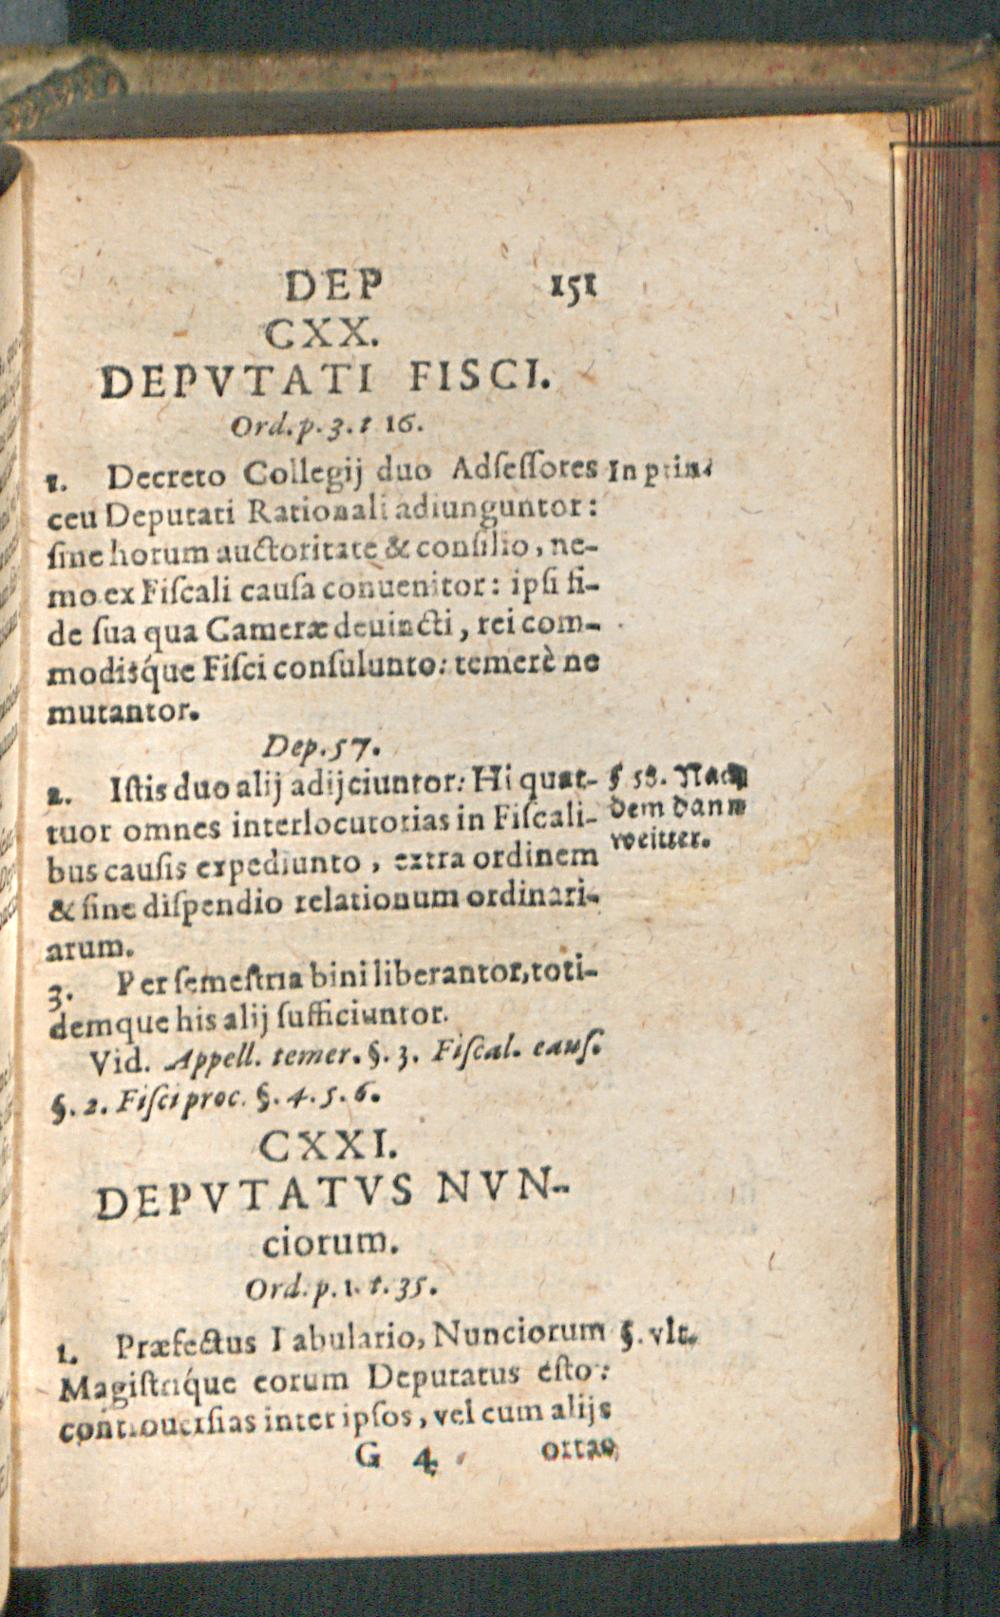 DEP 151
CXX.
DEPVTATI FISCI.
Ord. p. 3. t 16.
1. Decreto Collegij duo Adſeſſores In prin
ceu Deputati Rationali adiunguntor:
ſine horum auctoritate & conſilio, ne-
mo ex Fiſcali cauſa conuenitor: ipſi fi-
de ſua qua Cameræ deuincti, rei com-
modisq́ue Fiſci conſulunto: temerè ne
mutantor.
Dep. 57.
2. Iſtis duo alij adijciuntor: Hi quat- § 58. Nach
tuor omnes interlocutorias in Fiſcali- dem dann
bus cauſis expediunto, extra ordinem weitter.
& ſine diſpendio relationum ordinari-
arum.
3. Per ſemeſtria bini liberantor, toti-
demque his alij ſufficiuntor.
Vid. Appell. temer. §. 3. Fiſcal. cauſ.
§. 2. Fiſci proc. §. 4. 5. 6.
CXXI.
DEPVTATVS NVN-
ciorum.
Ord. p. 1. t. 35.
1. Præfectus Tabulario, Nunciorum §. vlt.
Magiſtriq́ue eorum Deputatus eſto:
controuerſias inter ipſos, vel cum alijs
G 4 ortas